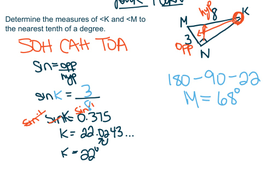 Determine the measures of <K and <M to
the nearest tenth of a degree.
SOH CAH TOA
sin = opp
hyp
sin K = 3
8
sin⁻¹ sin K = 0.375 sin⁻¹
K = 22.0243...
K = 22°
M hyp 8 K
3
opp
N
180-90-22
M = 68°